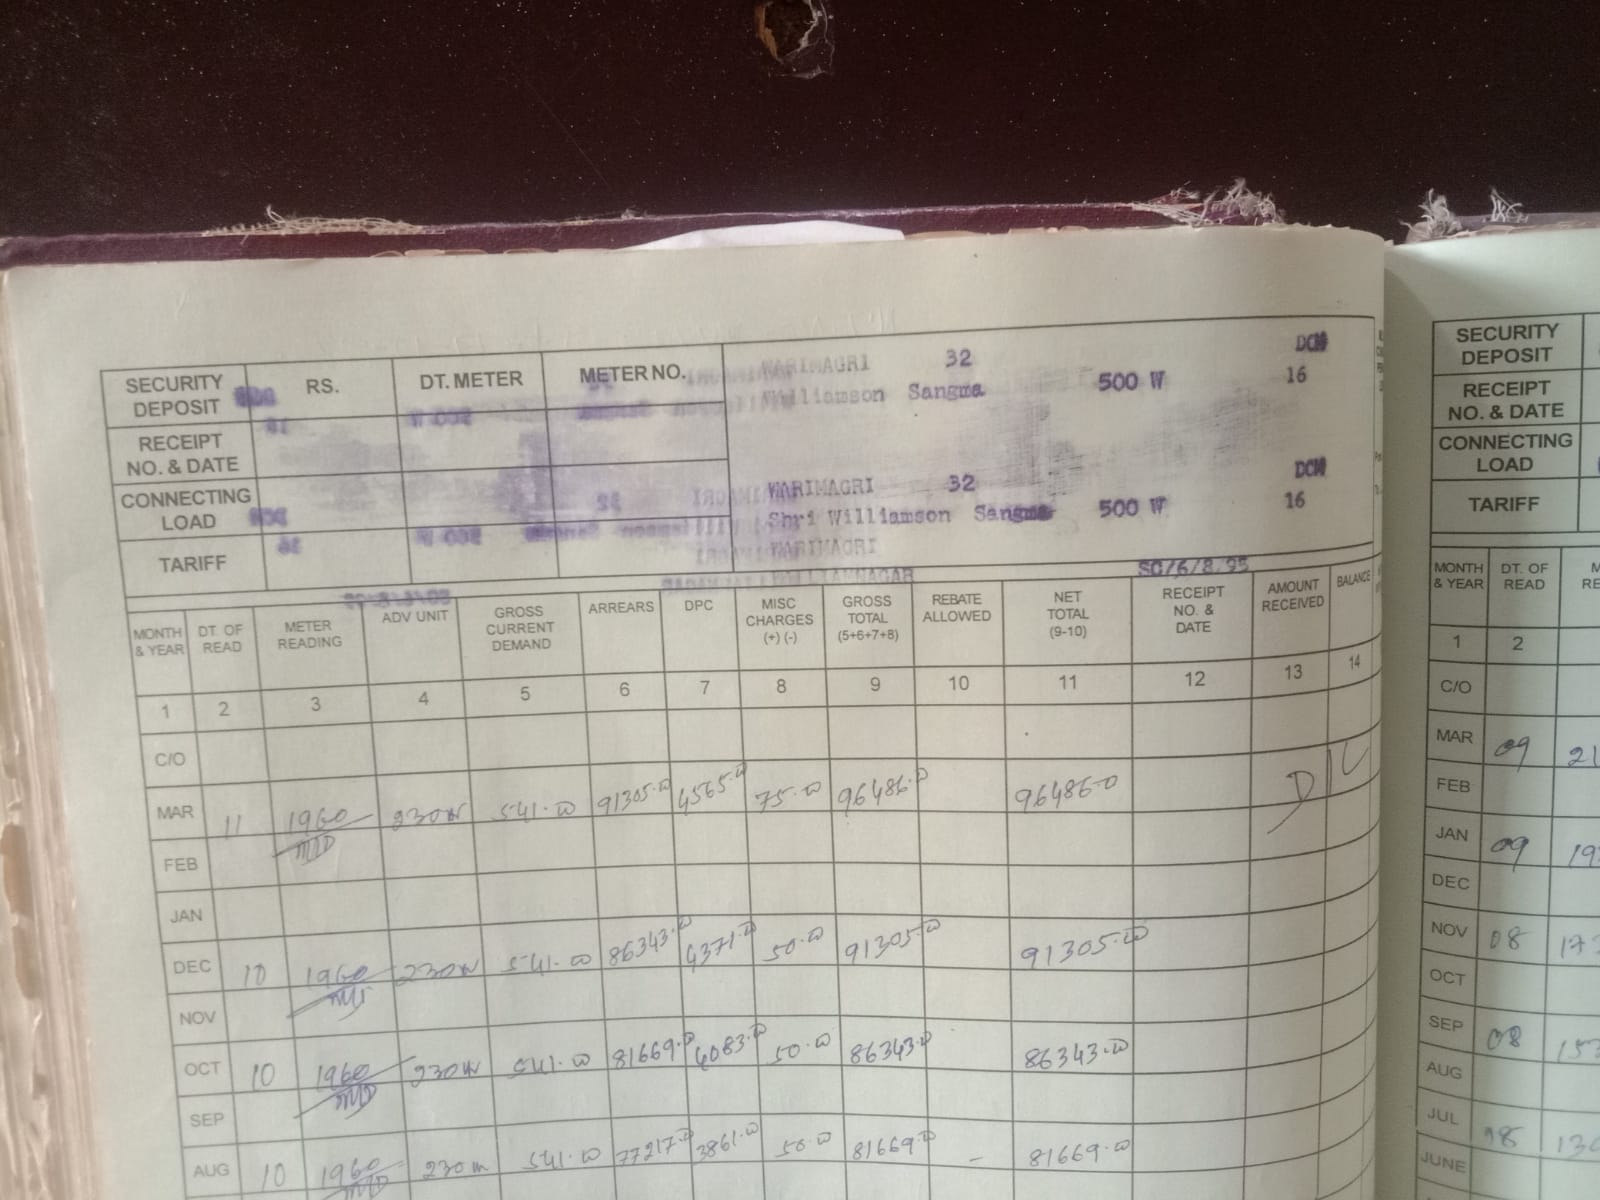 SECURITY DEPOSIT RS. DT. METER METER NO.
WARIMAGRI 32 DCM
Williamson Sangma 500 W 16
RECEIPT NO. & DATE
CONNECTING LOAD
WARIMAGRI 32 DCM
Shri Williamson Sangma 500 W 16
WARIMAGRI
TARIFF
WILLIAMNAGAR SC/6/8/95
MONTH & YEAR DT. OF READ METER READING ADV UNIT GROSS CURRENT DEMAND ARREARS DPC MISC CHARGES (+) (-) GROSS TOTAL (5+6+7+8) REBATE ALLOWED NET TOTAL (9-10) RECEIPT NO. & DATE AMOUNT RECEIVED BALANCE
1 2 3 4 5 6 7 8 9 10 11 12 13 14
C/O
MAR 11 1960 230 541.00 91305.00 4565.00 75.00 96486.0 96486.0
FEB
JAN
DEC 10 1960 230 541.00 86343.00 4371.00 50.00 91305.00 91305.00
NOV
OCT 10 1960 230 541.00 81669.00 4083.00 50.00 86343.00 86343.00
SEP
AUG 10 1960 230 541.00 77217.00 3861.00 50.00 81669.00 - 81669.00
SECURITY DEPOSIT
RECEIPT NO. & DATE
CONNECTING LOAD
TARIFF
MONTH & YEAR DT. OF READ
1 2
C/O
MAR 09
FEB
JAN 09
DEC
NOV 08
OCT
SEP 08
AUG
JUL 08
JUNE